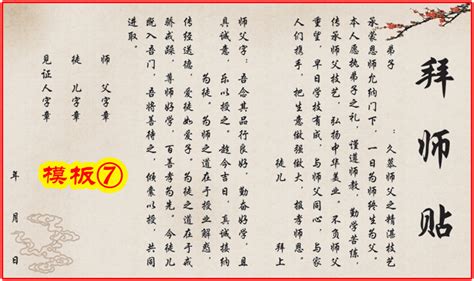 拜师贴
弟子　　　：久慕师父之精湛技艺
承蒙恩师允纳门下，一日为师终生为父，
本人愿执弟子之礼，谨遵师教，勤学苦练，
传承师父技艺，弘扬中华美业，不负师父
重望，早日学技有成，与师父同心，与家
人们携手，把生意做强做大，报孝师恩，
徒儿　　　拜上
师父字：吾念其品行良好，勤奋好学，且
具诚意，乐以授之，趁今吉日，真诚接纳
为徒，为师之道在于授业解惑
传经送德，爱徒如爱子，为徒之道在于戒
骄戒躁，尊师好学，百善孝为先，今徒儿
既入吾门，吾将善待之，倾囊以授，共同
进取。
师　父字章
徒　儿字章
见证人字章
年　月　日
模板⑦